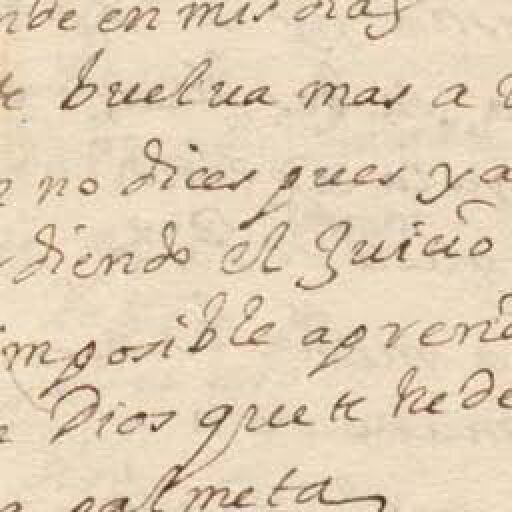 nde en mis dias
te buelua mas a
no dices pues ya
diendo el Juicio
imposible apren
Dios que te he de
palmeta